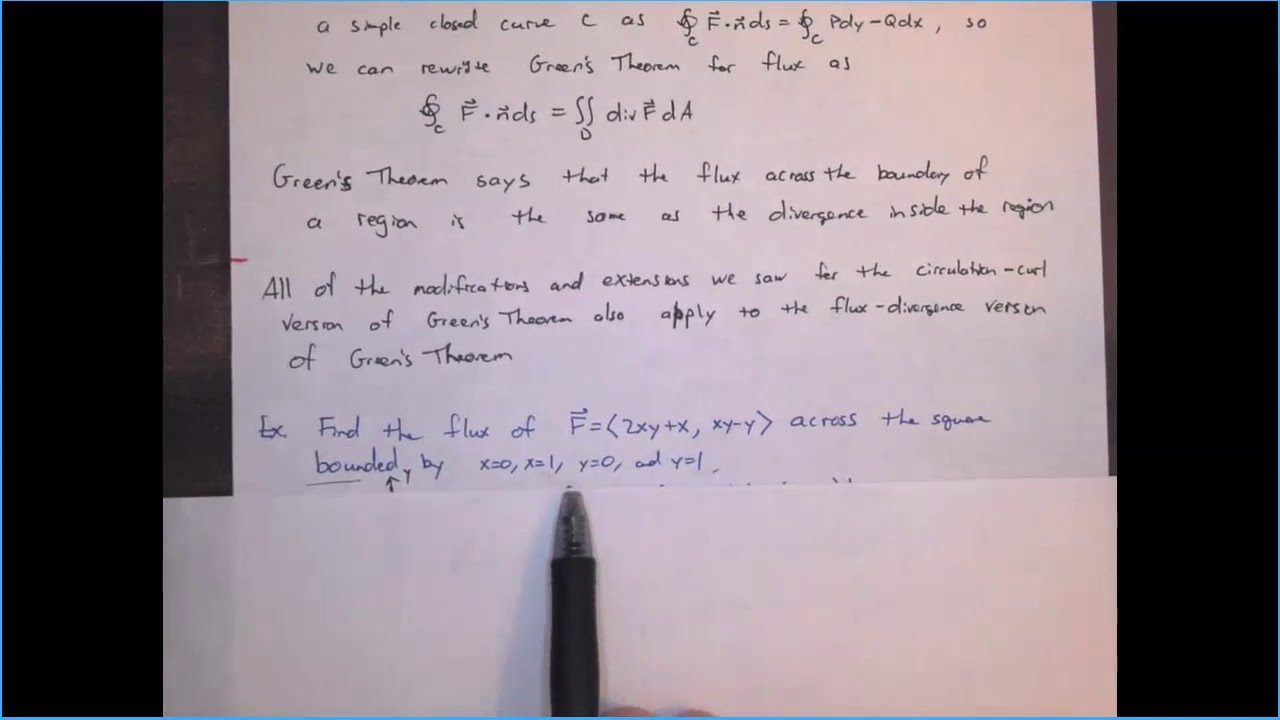 a simple closed curve C as ∮_C F⃗·n⃗ds = ∮_C Pdy-Qdx, so
we can rewrite Green's Theorem for flux as
∮_C F⃗·n⃗ds = ∬_D div F⃗ dA
Green's Theorem says that the flux across the boundary of
a region is the same as the divergence inside the region
All of the modifications and extensions we saw for the circulation-curl
version of Green's Theorem also apply to the flux-divergence version
of Green's Theorem
Ex. Find the flux of F⃗=⟨2xy+x, xy-y⟩ across the square
bounded by x=0, x=1, y=0, and y=1.